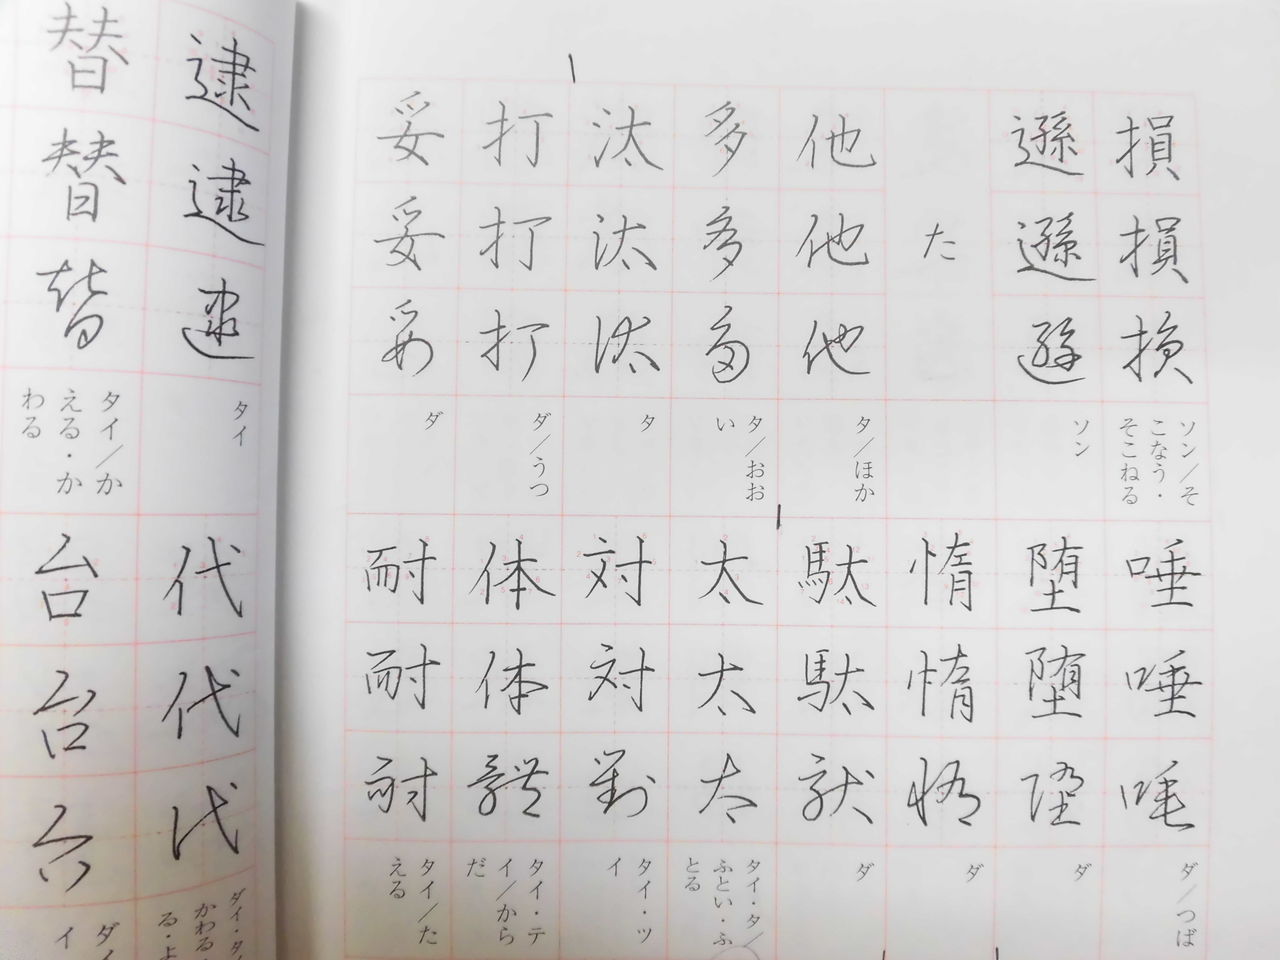 損 損 損
ソン／そこなう・そこねる
遜 遜 遜
ソン
た
他 他 他
タ／ほか
多 多 多
タ／おおい
汰 汰 汰
タ
打 打 打
ダ／うつ
妥 妥 妥
ダ
唾 唾 唾
ダ／つば
堕 堕 堕
ダ
惰 惰 惰
ダ
駄 駄 駄
ダ
太 太 太
タイ・タ／ふとい・ふとる
対 対 對
タイ・ツイ
体 体 體
タイ・テイ／からだ
耐 耐 耐
タイ／たえる
逮 逮 逮
タイ
替 替 替
タイ／かえる・かわる
代 代 代
ダイ・タ
かわる
る・よ
台 台 台
ダイ
イ